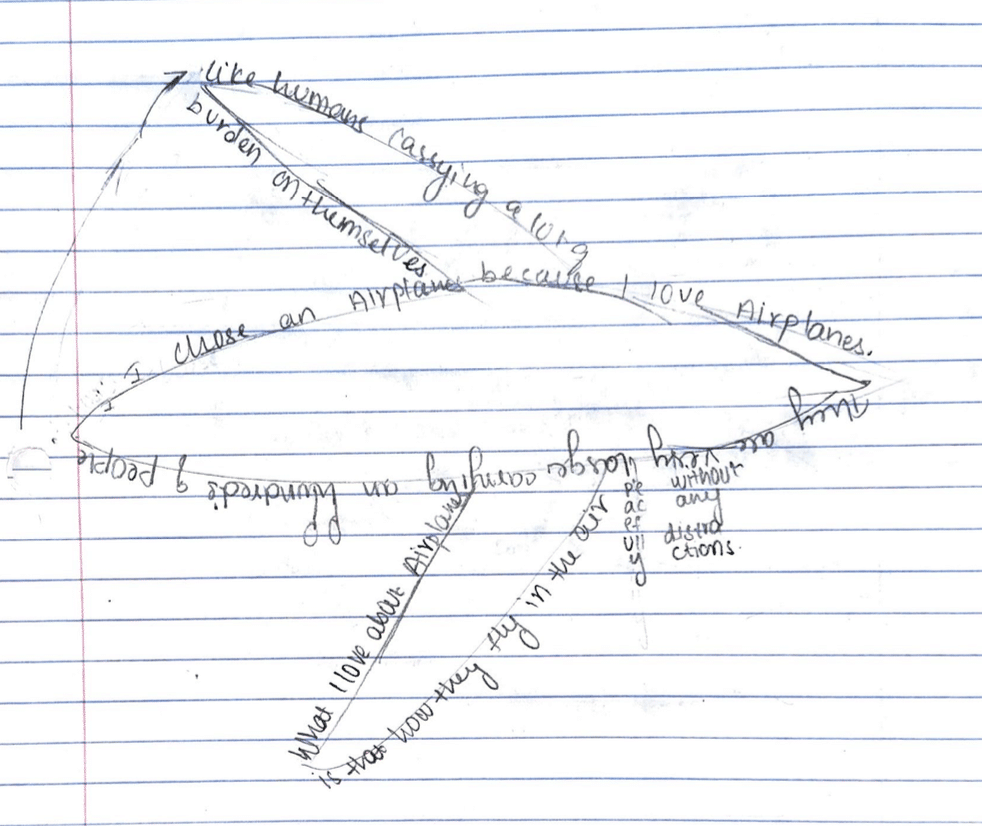 I chose an Airplane because I love Airplanes.
They are very large carrying an hundreds of people
like humans carrying a long
burden on themselves
What I love about Airplane
is that how they fly in the air
pe
ac
ef
ull
y
without
any
distra
ctions.